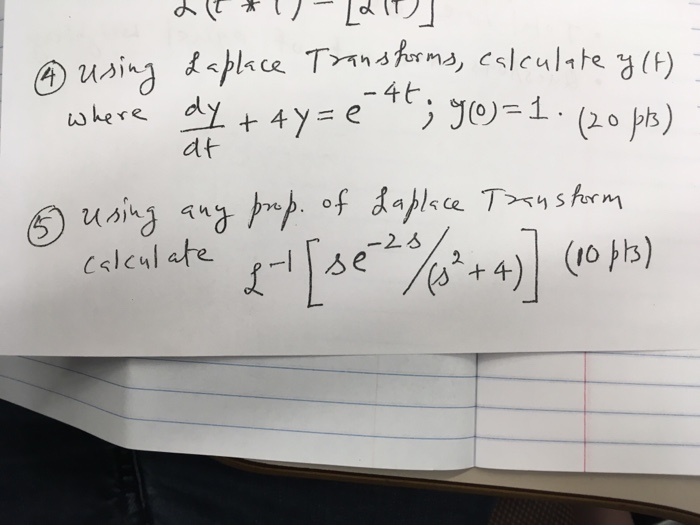 ④ Using Laplace Transforms, calculate y(t)
where dy/dt + 4y = e^{-4t}; y(0) = 1. (20 pts)
⑤ Using any prop. of Laplace Transform
calculate ℒ^{-1}[se^{-2s}/(s^2+4)] (10 pts)